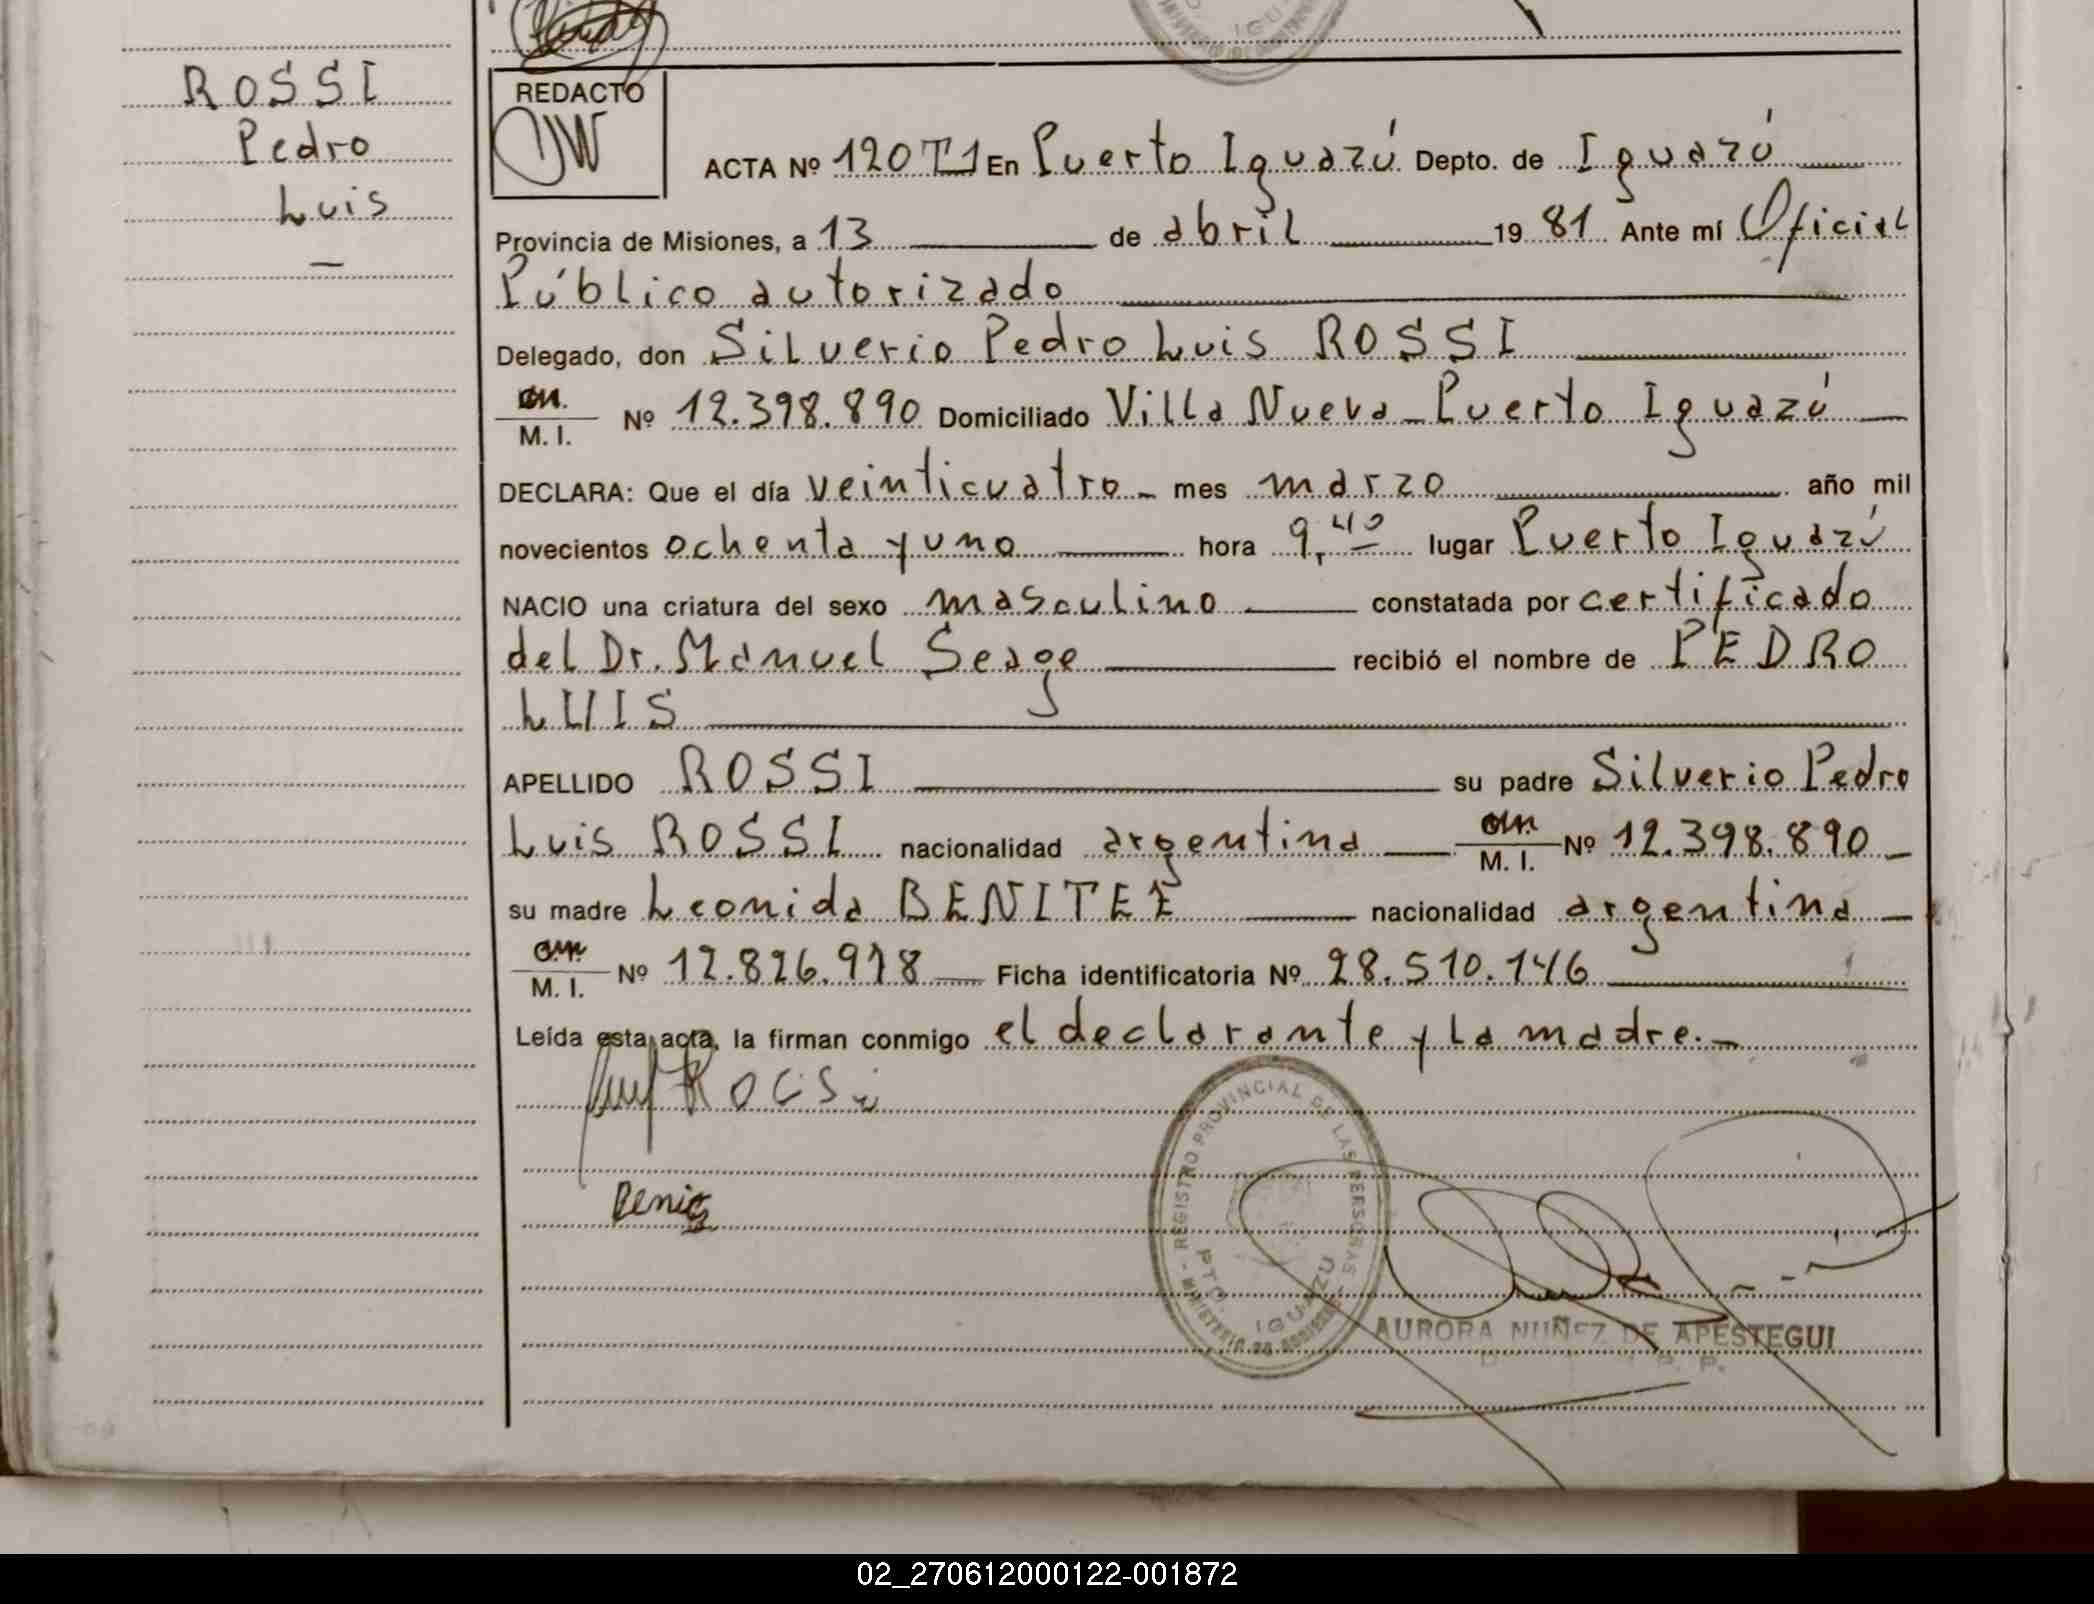 ROSSI
Pedro
Luis
REDACTO
ACTA Nº 120T1 En Puerto Iguazú Depto. de Iguazú
Provincia de Misiones, a 13 de abril 1981 Ante mí Oficial
Público autorizado
Delegado, don Silverio Pedro Luis ROSSI
M. I. Nº 12.398.890 Domiciliado Villa Nueva - Puerto Iguazú
DECLARA: Que el día veinticuatro mes marzo año mil
novecientos ochenta y uno hora 9,40 lugar Puerto Iguazú
NACIO una criatura del sexo masculino constatada por certificado
del Dr. Manuel Seage recibió el nombre de PEDRO
LUIS
APELLIDO ROSSI su padre Silverio Pedro
Luis ROSSI nacionalidad argentina M. I. Nº 12.398.890
su madre Leonida BENITEZ nacionalidad argentina
M. I. Nº 12.826.918 Ficha identificatoria Nº 28.510.146
Leída esta acta, la firman conmigo el declarante y la madre.-
REGISTRO PROVINCIAL DE LAS PERSONAS
PTO. IGUAZU
AURORA NUÑEZ DE APESTEGUI
02_270612000122-001872